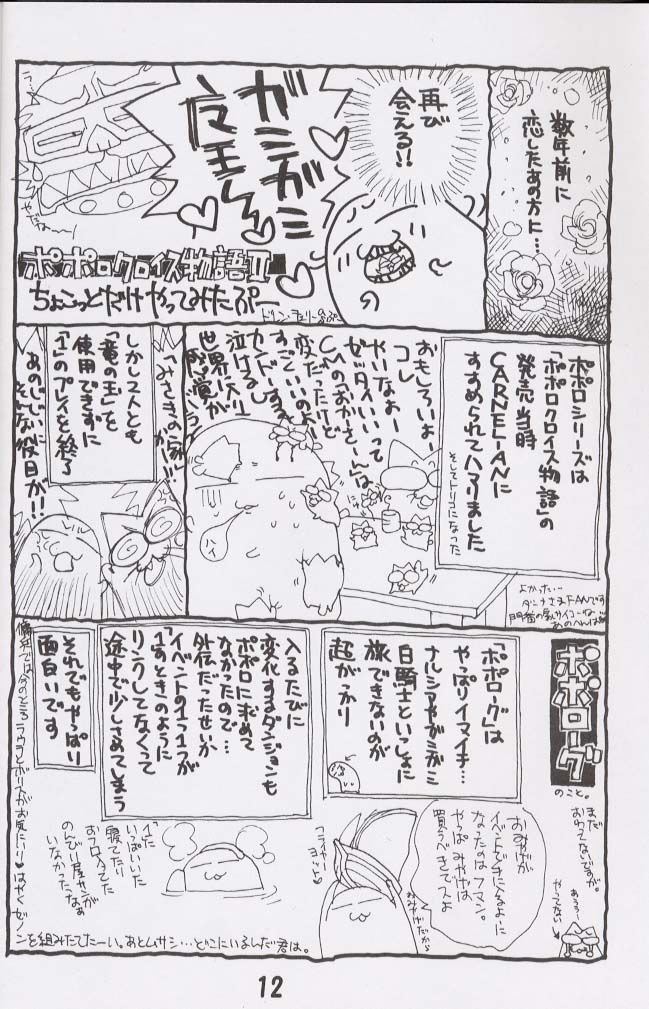 数年前に
恋したあの方に…
再び
会える!!
ガミガミ
魔王
ポポロクロイス物語II
ちょこっとだけやってみたぷー
ポポロシリーズは
「ポポロクロイス物語」の
発売当時
CARNELIANに
すすめられてハマりました
そしてトリコになった
おもしろいよー
コレ
やいなよー
ゼッタイいいって
CMの「おかーさーん」は
変だったけど
すごくいいのよー
カンドーするよ
泣けるし
世界に入り
感覚が
ハイ
「みさきの家」
かは!!!
しかし2人とも
「竜の玉」を
使用できずに
「1」のプレイを終了
あのじじいに
そんな役目が!!
よかった…
ダンナさまFANです
ポポローグ
のこと。
まだ
おわってないですが。
あうう…
やってない
「ポポローグ」は
やっぱりイマイチ…
ナルシャやガミガミ
白騎士といっしょに
旅できないのが
超がっかり
入るたびに
変化するダンジョンも
ポポロに求めて
なかったので…
外伝だったせいか
イベントの1つ1つが
「1」のときのように
リンクしてなくって
途中で少しさめてしまう
それでもやっぱり
面白いです
おみやげが
イベントで手に入るように
なったのはフマン。
やっぱみやげは
買うべきでスよ
おみやげだから
フライヤー
ヨット
「1」だ
いっぱいいた
寝てたり
おフロ入ってた
のんびり屋サンが
いなかったなぁ
傭兵では今のところラウラとボリスがお気に入り♥はやくゼノンを組みたてたーい。あとムサシ…どこにいるんだ君は。
12